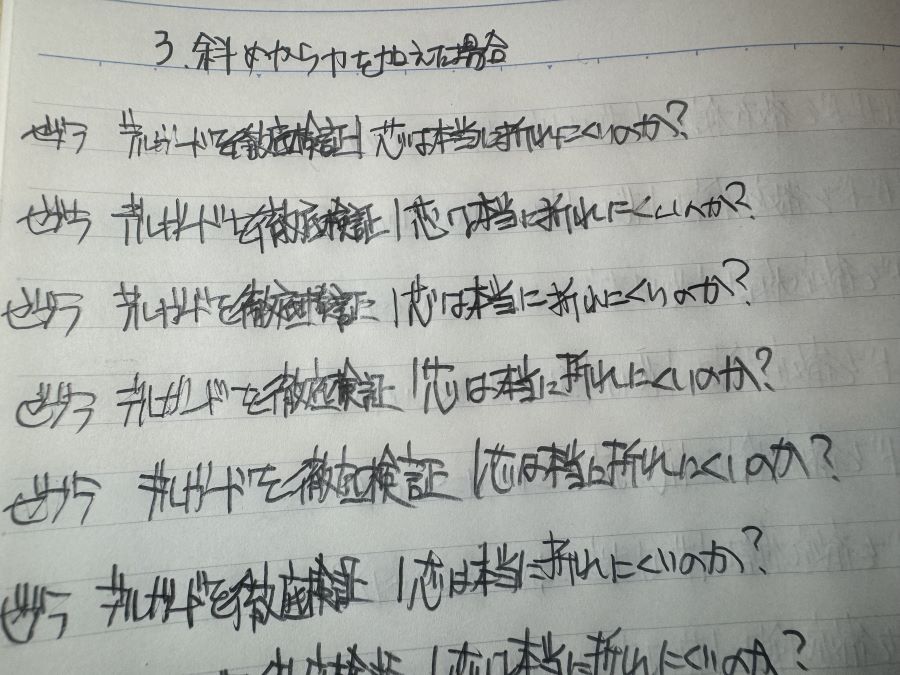 3. 斜めから力を加えた場合
ゼブラ デルガードを徹底検証|芯は本当に折れにくいのか?
ゼブラ デルガードを徹底検証|芯は本当に折れにくいのか?
ゼブラ デルガードを徹底検証|芯は本当に折れにくいのか?
ゼブラ デルガードを徹底検証|芯は本当に折れにくいのか?
ゼブラ デルガードを徹底検証|芯は本当に折れにくいのか?
ゼブラ デルガードを徹底検証|芯は本当に折れにくいのか?
徹底検証|芯は本当に折れにくいのか?